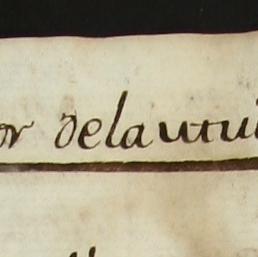 or delautui